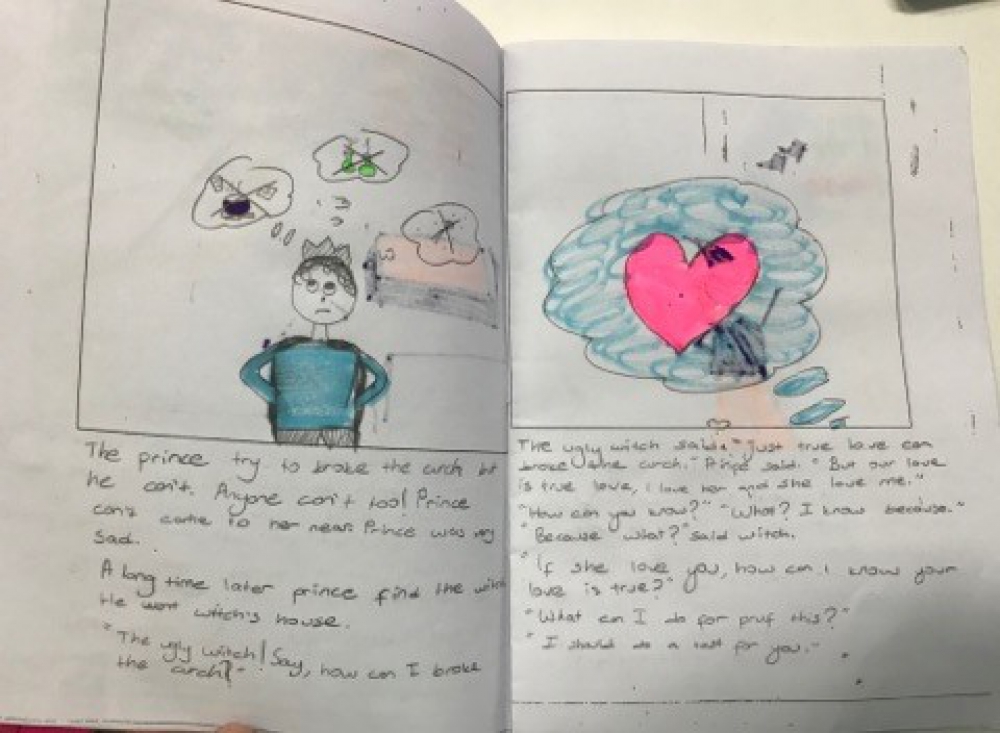 The prince try to broke the curch but
he can't. Anyone can't too! Prince
can't come to her near. Prince was very
sad.
A long time later prince find the witch
He went witch's house.
"The ugly witch! Say, how can I broke
the curch?"
The ugly witch said: "Just true love can
broke the curch." Prince said. "But our love
is true love, I love her and she love me."
"How can you know?" "What? I know because."
"Because what?" said witch.
"If she love you, how can I know your
love is true?"
"What can I do for pruf this?"
"I should do a test for you."